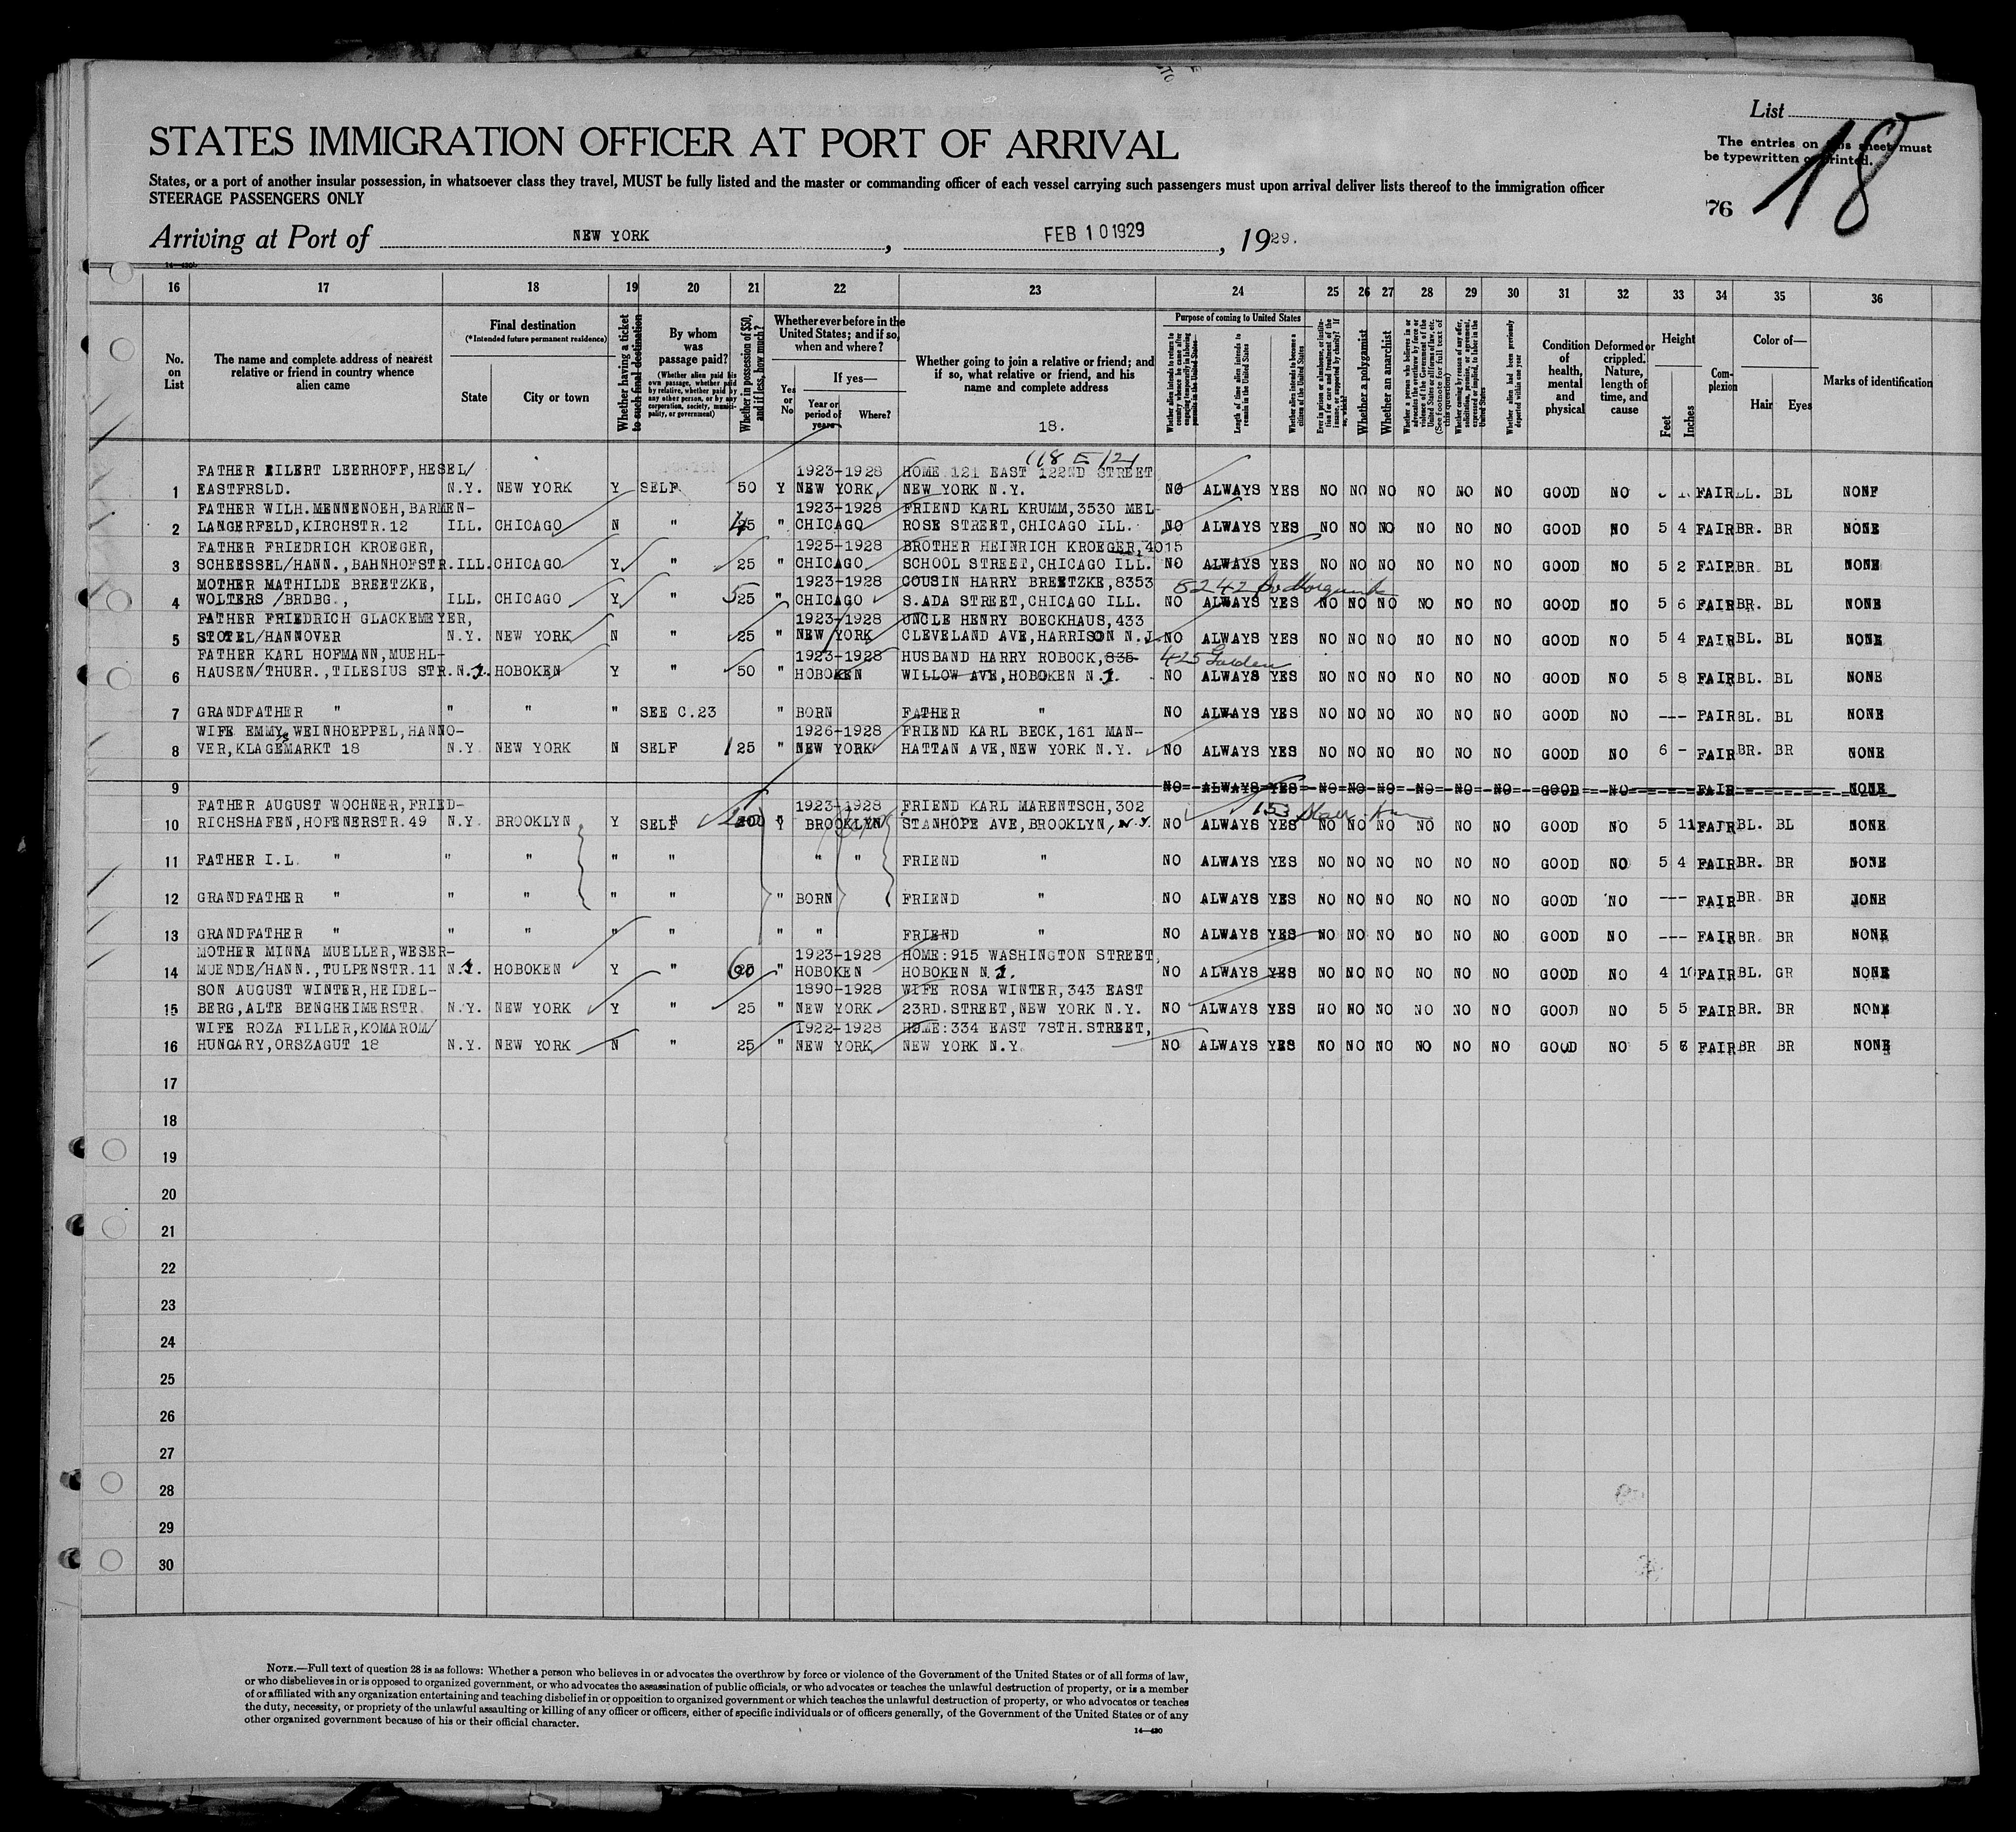 List
The entries on this sheet must
be typewritten or printed.
18
76
STATES IMMIGRATION OFFICER AT PORT OF ARRIVAL
States, or a port of another insular possession, in whatsoever class they travel, MUST be fully listed and the master or commanding officer of each vessel carrying such passengers must upon arrival deliver lists thereof to the immigration officer
STEERAGE PASSENGERS ONLY
Arriving at Port of NEW YORK, FEB 10 1929, 1929.
16 17 18 19 20 21 22 23 24 25 26 27 28 29 30 31 32 33 34 35 36
No. on List
The name and complete address of nearest relative or friend in country whence alien came
Final destination
(*Intended future permanent residence)
State
City or town
Whether having a ticket to such final destination
By whom was passage paid?
(Whether alien paid his own passage, whether paid by relative, whether paid by any other person, or by any corporation, society, municipality, or government)
Whether in possession of $50, and if less, how much?
Whether ever before in the United States; and if so, when and where?
Yes or No
If yes—
Year or period of years
Where?
Whether going to join a relative or friend; and if so, what relative or friend, and his name and complete address
18.
Purpose of coming to United States
Length of time alien intends to remain in the United States
Whether alien intends to become a citizen of the United States
Whether a polygamist
Whether an anarchist
Whether alien had been previously deported within one year
Condition of health, mental and physical
Deformed or crippled. Nature, length of time, and cause
Height
Feet
Inches
Complexion
Color of—
Hair
Eyes
Marks of identification
118 E 121
FATHER EILERT LEERHOFF,HESEL/ 1923-1928 HOME 121 EAST 122ND STREET
1 EASTFRSLD. N.Y. NEW YORK Y SELF 50 Y NEW YORK NEW YORK N.Y. NO ALWAYS YES NO NO NO NO NO NO GOOD NO FAIR BL. BL NONE
FATHER WILH.MENNENOEH,BARMEN- 1923-1928 FRIEND KARL KRUMM,3530 MEL-
2 LANGERFELD,KIRCHSTR.12 ILL. CHICAGO N " 25 " CHICAGO ROSE STREET,CHICAGO ILL. NO ALWAYS YES NO NO NO NO NO NO GOOD NO 5 4 FAIR BR. BR NONE
FATHER FRIEDRICH KROEGER, 1925-1928 BROTHER HEINRICH KROEGER,4015
3 SCHEESSEL/HANN.,BAHNHOFSTR. ILL. CHICAGO Y " 25 " CHICAGO SCHOOL STREET,CHICAGO ILL. NO ALWAYS YES NO NO NO NO NO NO GOOD NO 5 2 FAIR BR. BL NONE
MOTHER MATHILDE BREETZKE, 1923-1928 COUSIN HARRY BREETZKE,8353 8242
4 WOLTERS /BRDBG., ILL. CHICAGO Y " 525 " CHICAGO S.ADA STREET,CHICAGO ILL. NO ALWAYS YES NO NO NO NO NO NO GOOD NO 5 6 FAIR BR. BL NONE
FATHER FRIEDRICH GLACKEMEYER, 1923-1928 UNCLE HENRY BOECKHAUS,433
5 STOTEL/HANNOVER N.Y. NEW YORK N " 25 " NEW YORK CLEVELAND AVE,HARRISON N.J. NO ALWAYS YES NO NO NO NO NO NO GOOD NO 5 4 FAIR BL. BL NONE
FATHER KARL HOFMANN,MUEHL- 1923-1928 HUSBAND HARRY ROBOCK,835 425
6 HAUSEN/THUER.,TILESIUS STR. N.J. HOBOKEN Y " 50 " HOBOKEN WILLOW AVE,HOBOKEN N.J. NO ALWAYS YES NO NO NO NO NO NO GOOD NO 5 8 FAIR BL. BL NONE
7 GRANDFATHER " " " " SEE C.23 " BORN FATHER " NO ALWAYS YES NO NO NO NO NO NO GOOD NO --- FAIR BL. BL NONE
WIFE EMMY WEINHOEPPEL,HANNO- 1926-1928 FRIEND KARL BECK,161 MAN-
8 VER,KLAGEMARKT 18 N.Y. NEW YORK N SELF 125 " NEW YORK HATTAN AVE,NEW YORK N.Y. NO ALWAYS YES NO NO NO NO NO NO GOOD NO 6 - FAIR BR. BR NONE
9 NO ALWAYS YES NO NO NO NO NO NO GOOD NO FAIR NONE
FATHER AUGUST WOCHNER,FRIED- 1923-1928 FRIEND KARL MARENTSCH,302 153
10 RICHSHAFEN,HOFENERSTR.49 N.Y. BROOKLYN Y SELF Y BROOKLYN STANHOPE AVE,BROOKLYN, N.Y. NO ALWAYS YES NO NO NO NO NO NO GOOD NO 5 11 FAIR BL. BL NONE
11 FATHER I.L. " " " " " " " FRIEND " NO ALWAYS YES NO NO NO NO NO NO GOOD NO 5 4 FAIR BR. BR NONE
12 GRANDFATHER " " " " " " BORN FRIEND " NO ALWAYS YES NO NO NO NO NO NO GOOD NO --- FAIR BR. BR NONE
13 GRANDFATHER " " " " " " " FRIEND " NO ALWAYS YES NO NO NO NO NO NO GOOD NO --- FAIR BR. BR NONE
MOTHER MINNA MUELLER,WESER- 1923-1928 HOME:915 WASHINGTON STREET,
14 MUENDE/HANN.,TULPENSTR.11 N.J. HOBOKEN Y " " HOBOKEN HOBOKEN N.J. NO ALWAYS YES NO NO NO NO NO NO GOOD NO 4 10 FAIR BL. GR NONE
SON AUGUST WINTER,HEIDEL- 1890-1928 WIFE ROSA WINTER,343 EAST
15 BERG,ALTE BENGHEIMERSTR. N.Y. NEW YORK Y " 25 " NEW YORK 23RD.STREET,NEW YORK N.Y. NO ALWAYS YES NO NO NO NO NO NO GOOD NO 5 5 FAIR BR. BR NONE
WIFE ROZA FILLER,KOMAROM/ 1922-1928 HOME:334 EAST 78TH.STREET,
16 HUNGARY,ORSZAGUT 18 N.Y. NEW YORK N " 25 " NEW YORK NEW YORK N.Y. NO ALWAYS YES NO NO NO NO NO NO GOOD NO 5 6 FAIR BR BR NONE
17
18
19
20
21
22
23
24
25
26
27
28
29
30
NOTE.—Full text of question 28 is as follows: Whether a person who believes in or advocates the overthrow by force or violence of the Government of the United States or of all forms of law,
or who disbelieves in or is opposed to organized government, or who advocates the assassination of public officials, or who advocates or teaches the unlawful destruction of property, or is a member
of or affiliated with any organization entertaining and teaching disbelief in or opposition to organized government or which teaches the unlawful destruction of property, or who advocates or teaches
the duty, necessity, or propriety of the unlawful assaulting or killing of any officer or officers, either of specific individuals or of officers generally, of the Government of the United States or of any
other organized government because of his or their official character.
14—430